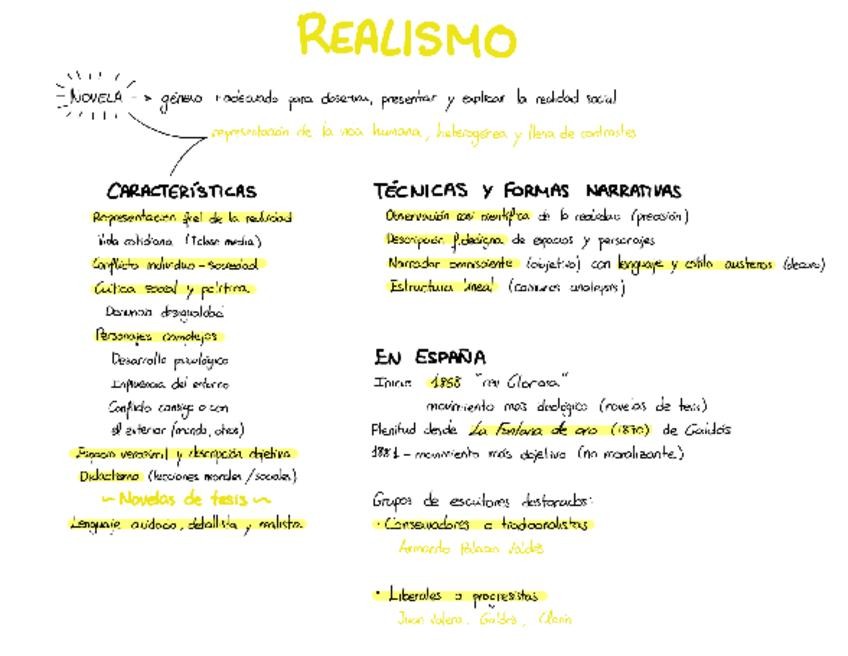 REALISMO
NOVELA -> género + adecuado para observar, presentar y explicar la realidad social
representación de la vida humana, heterogénea y llena de contrastes
CARACTERÍSTICAS
Representación fiel de la realidad
Vida cotidiana (↑clase media)
Conflicto individuo - sociedad
Crítica social y política
Denuncia desigualdad
Personajes complejos
Desarrollo psicológico
Influencia del entorno
Conflicto consigo o con
el exterior (mundo, otros)
Espacio verosímil y descripción objetiva
Didactismo (lecciones morales / sociales)
~ Novelas de tesis ~
Lenguaje cuidado, detallista y realista
TÉCNICAS Y FORMAS NARRATIVAS
Observación casi científica de la realidad (precisión)
Descripción fidedigna de espacios y personajes
Narrador omnisciente (objetivo) con lenguaje y estilo austeros (decoro)
Estructura lineal (comunes analepsis)
EN ESPAÑA
Inicio: 1868 "rev Gloriosa"
movimiento más ideológico (novelas de tesis)
Plenitud desde La Fontana de oro (1870) de Galdós
1881 - movimiento más objetivo (no moralizante)
Grupos de escritores destacados:
· Conservadores o tradicionalistas
Armando Palacio Valdés
· Liberales o progresistas
Juan Valera, Galdós, Clarín